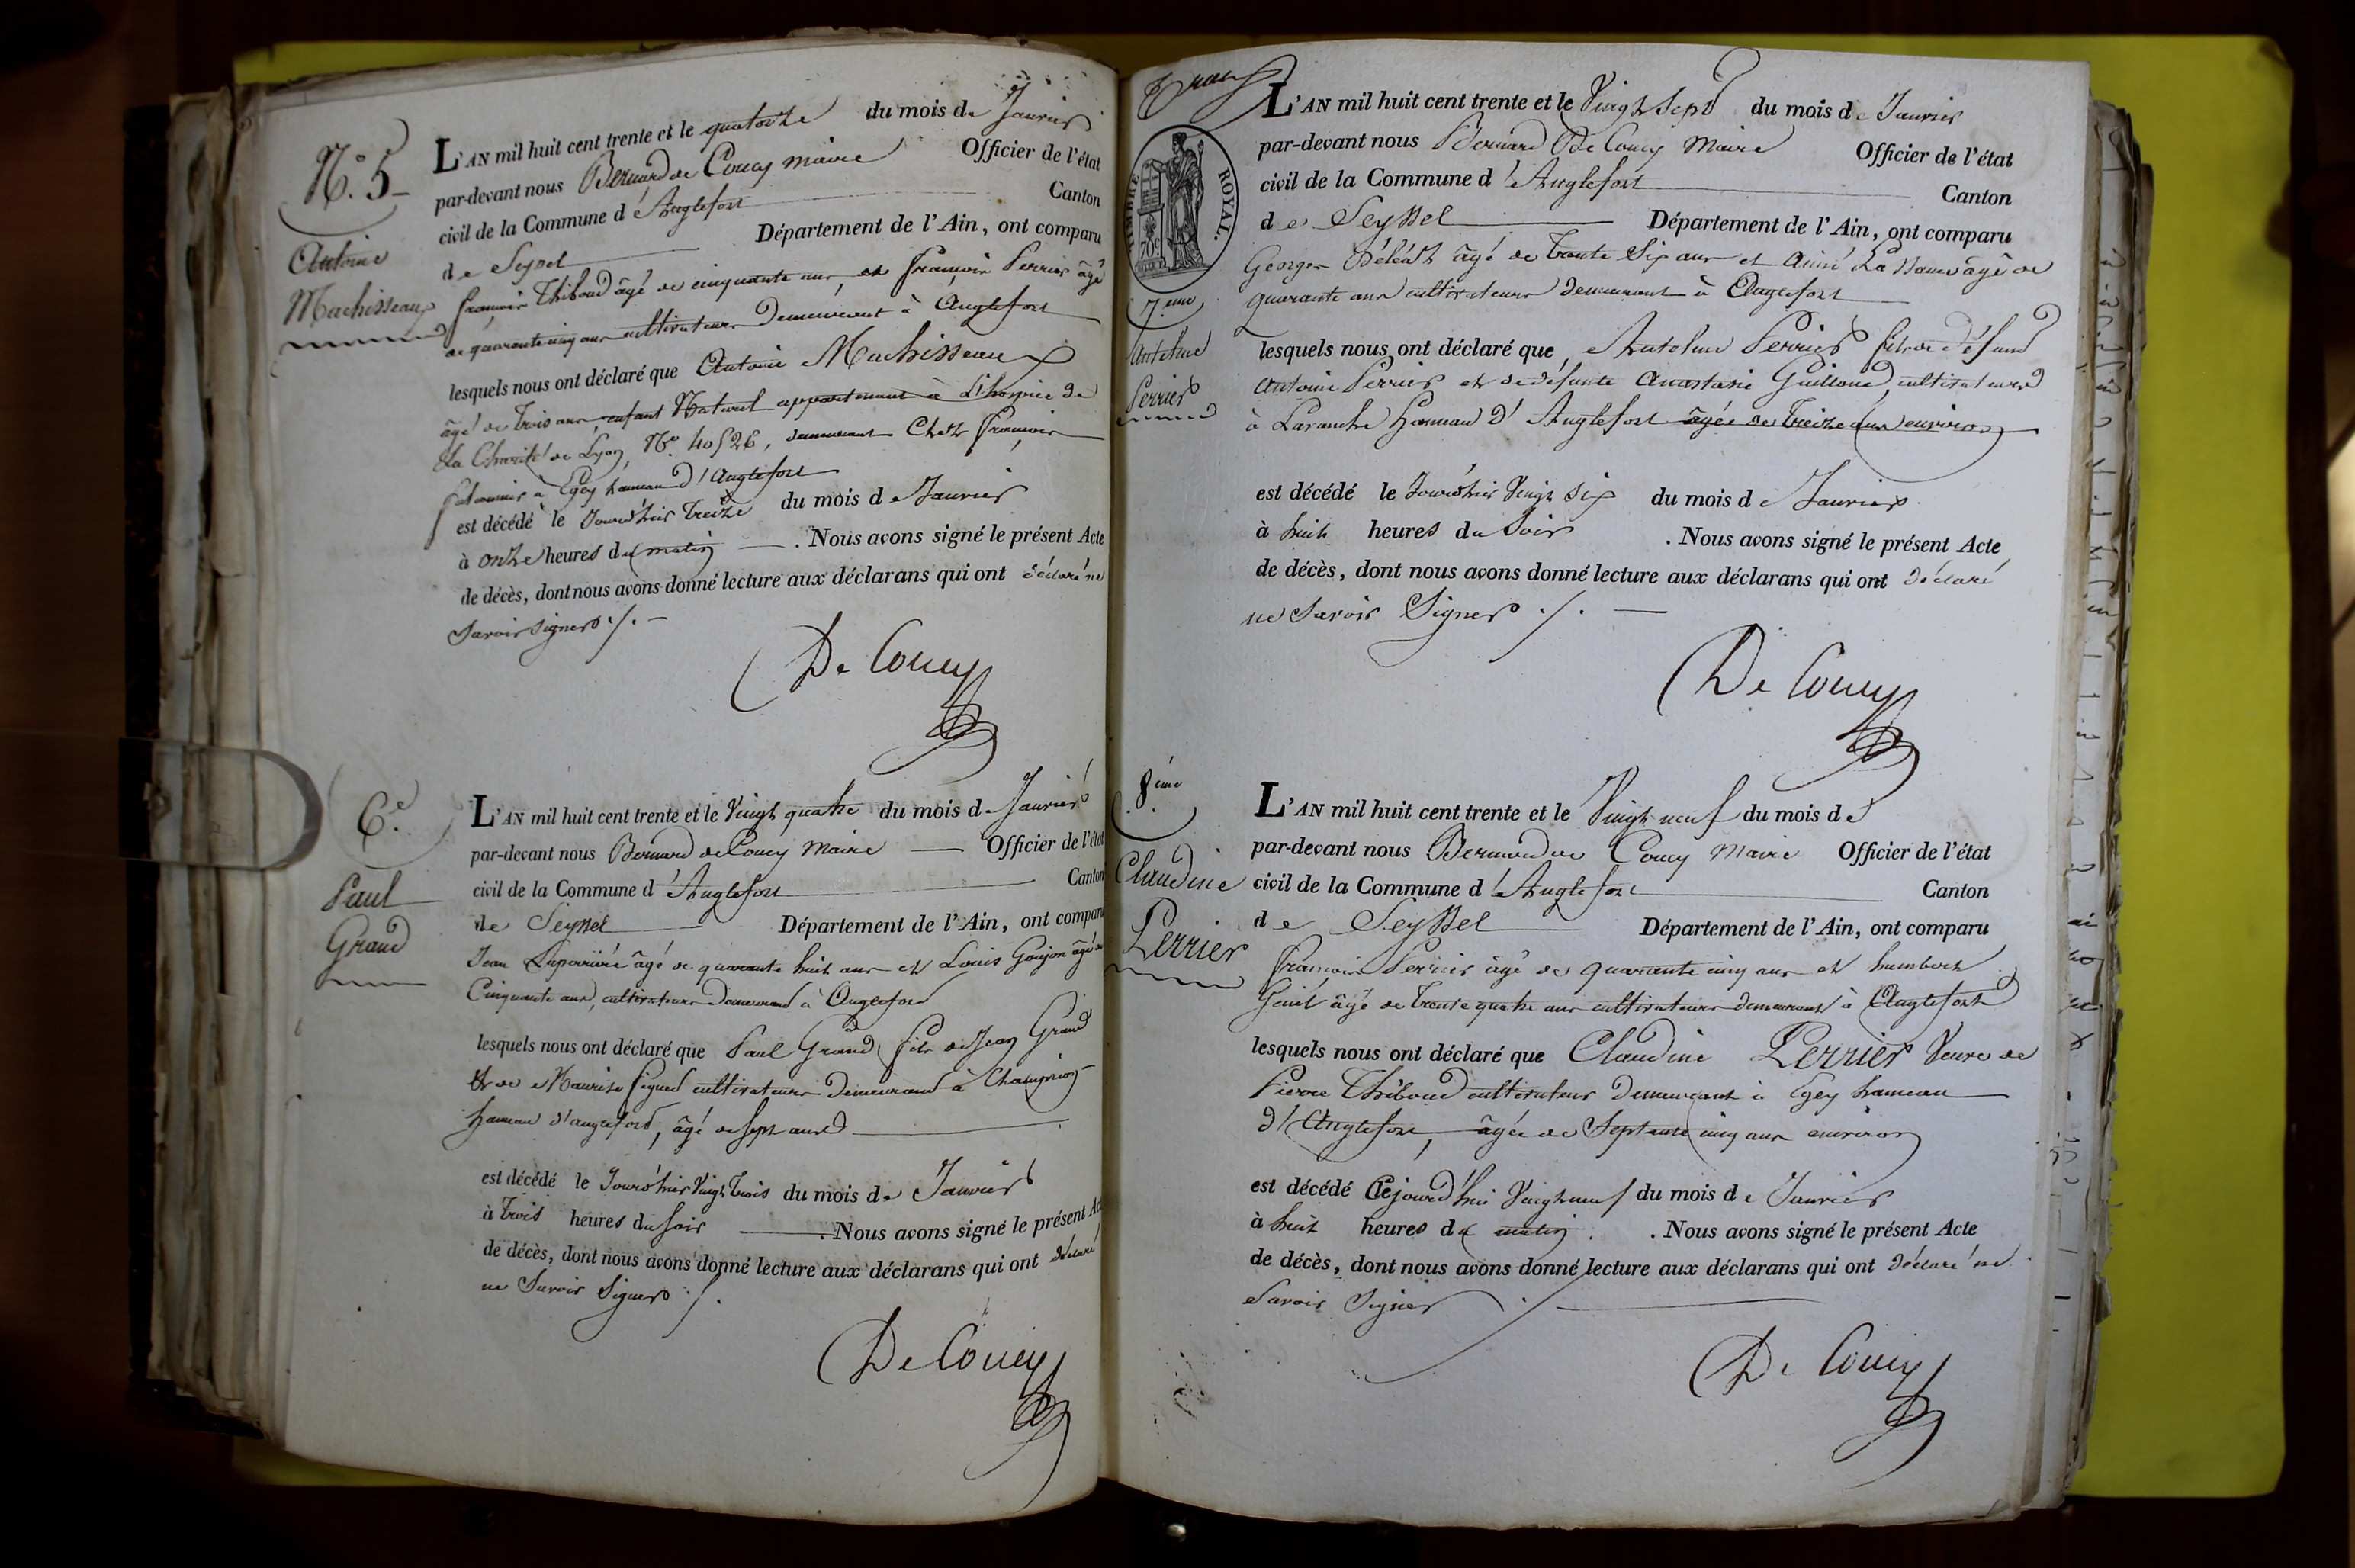 N.º 5
Antoine
Machisseaux
L'AN mil huit cent trente et le quatorze du mois de Janvier
par-devant nous Bernard de Coucy maire Officier de l'état
civil de la Commune d'Anglefort Canton
de Seyssel Département de l'Ain, ont comparu
françois Thiboud âgé de cinquante ans, et françois Perrier âgé
de quarante cinq ans cultivateurs demeurant à Anglefort
lesquels nous ont déclaré que Antoine Machisseaux
âgé de trois ans, enfant Naturel appartenant à L'hospice de
la Charité de Lyon, Nº. 40526, demeurant Chez françois
à Egey hameau d'Anglefort
est décédé le Jourd'hier treize du mois de Janvier
à onze heures du matin . Nous avons signé le présent Acte
de décès, dont nous avons donné lecture aux déclarans qui ont déclaré ne
Savoir signer ./.
De Coucy
6.e
Paul
Grand
L'AN mil huit cent trente et le Vingt quatre du mois de Janvier
par-devant nous Bernard de Coucy Maire Officier de l'état
civil de la Commune d'Anglefort Canton
de Seyssel Département de l'Ain, ont comparu
Jean âgé de quarante huit ans et Louis Goujon âgé de
Cinquante ans, cultivateurs demeurant à Anglefort
lesquels nous ont déclaré que Paul Grand fils de Jean Grand
et de cultivateurs demeurant à
hameau d'anglefort, âgé de sept ans
est décédé le Jourd'hier Vingt trois du mois de Janvier
à trois heures du soir . Nous avons signé le présent Acte
de décès, dont nous avons donné lecture aux déclarans qui ont déclaré
ne Savoir Signer ./.
De Coucy
TIMBRE ROYAL.
70c
7.eme
Antelme
Perrier
L'AN mil huit cent trente et le Vingt Sept du mois de Janvier
par-devant nous Bernard De Coucy Maire Officier de l'état
civil de la Commune d'Anglefort Canton
de Seyssel Département de l'Ain, ont comparu
Georges âgé de trente Six ans et Aimé âgé de
quarante ans cultivateurs demeurant à Anglefort
lesquels nous ont déclaré que Antelme Perrier fils de défunt
Antoine Perrier et de défunte Anastasie cultivateurs
à Lavanche Hameau d'Anglefort âgée de treize ans environ
est décédé le Jourd'hier Vingt Six du mois de Janvier
à huit heures du Soir . Nous avons signé le présent Acte
de décès, dont nous avons donné lecture aux déclarans qui ont déclaré
ne Savoir Signer ./.
De Coucy
8.eme
Claudine
Perrier
L'AN mil huit cent trente et le Vingt neuf du mois de
par-devant nous Bernard de Coucy Maire Officier de l'état
civil de la Commune d'Anglefort Canton
de Seyssel Département de l'Ain, ont comparu
françois Perrier âgé de quarante cinq ans et humbert
âgé de trente quatre ans cultivateurs demeurant à Anglefort
lesquels nous ont déclaré que Claudine Perrier Veuve de
Pierre Thiboud cultivateur demeurant à Egey hameau
d'Anglefort, âgée de Septante cinq ans environ
est décédé Cejourd'hui Vingt neuf du mois de Janvier
à huit heures du matin . Nous avons signé le présent Acte
de décès, dont nous avons donné lecture aux déclarans qui ont déclaré ne
Savoir Signer ./.
De Coucy